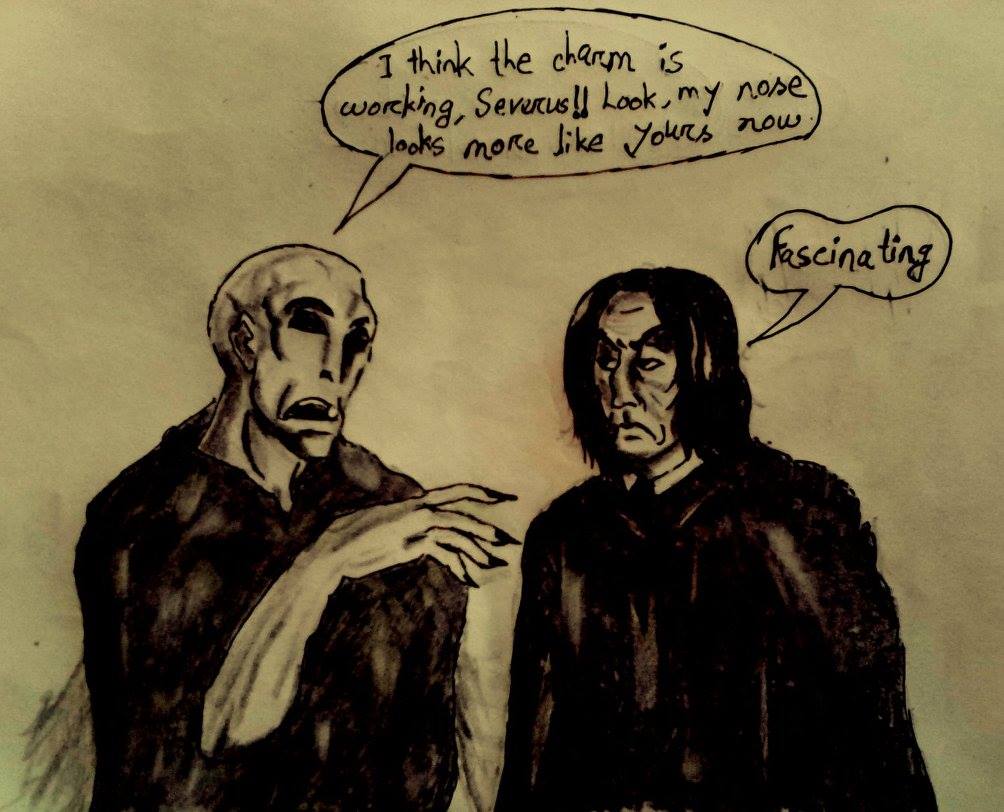 I think the charm is
working, Severus!! Look, my nose
looks more like yours now
Fascinating